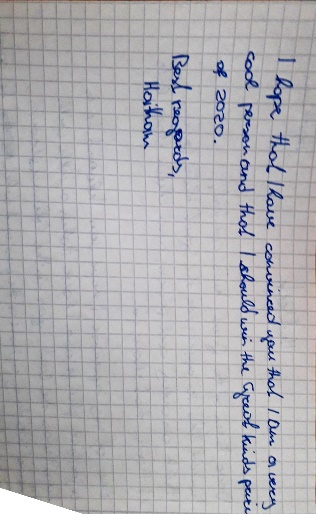 I hope that I have convinced you that I am a very
cool person and that I should win the Great Minds price
of 2020.
Best regards,
Haitham